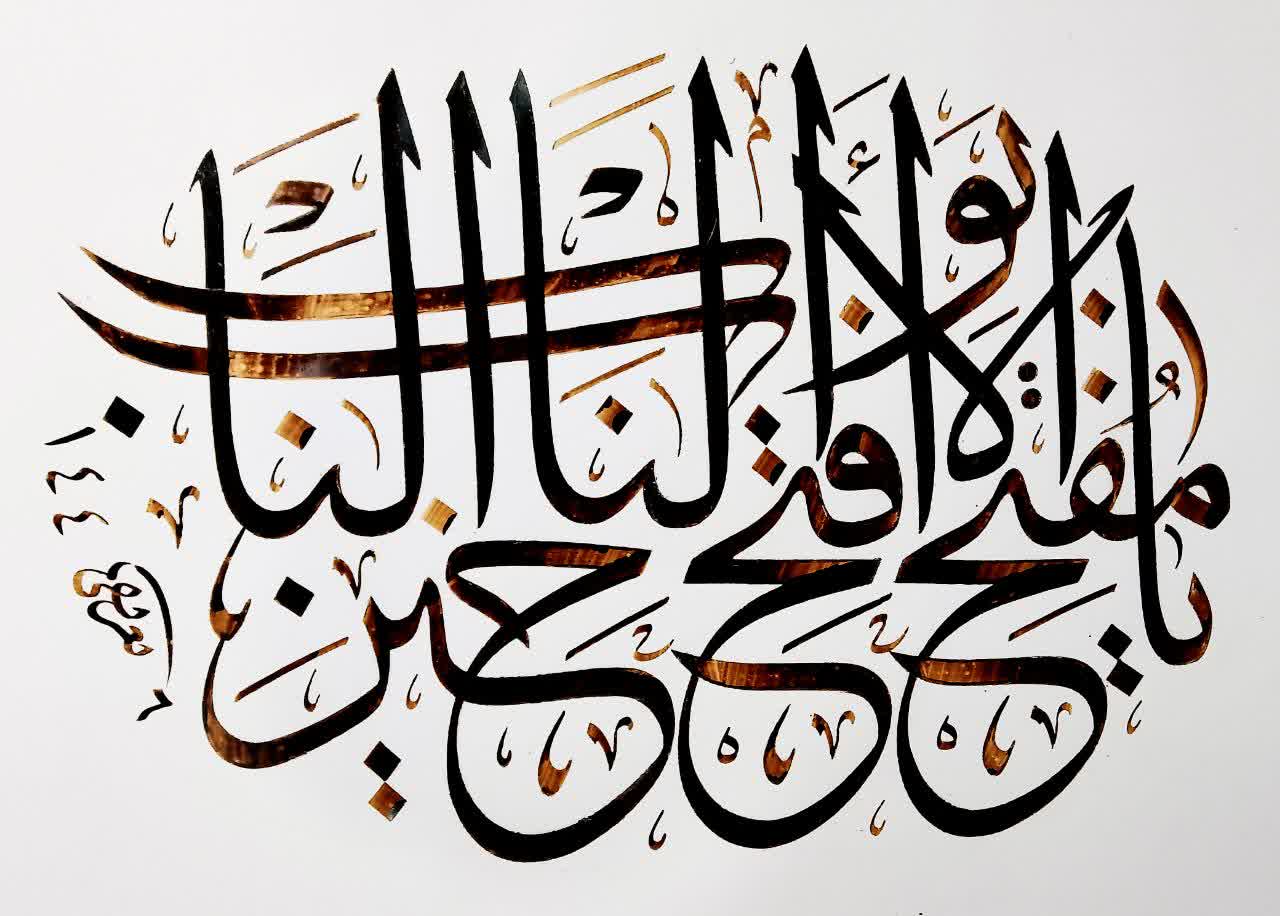 يا مفتح الأبواب افتح لنا خير الباب